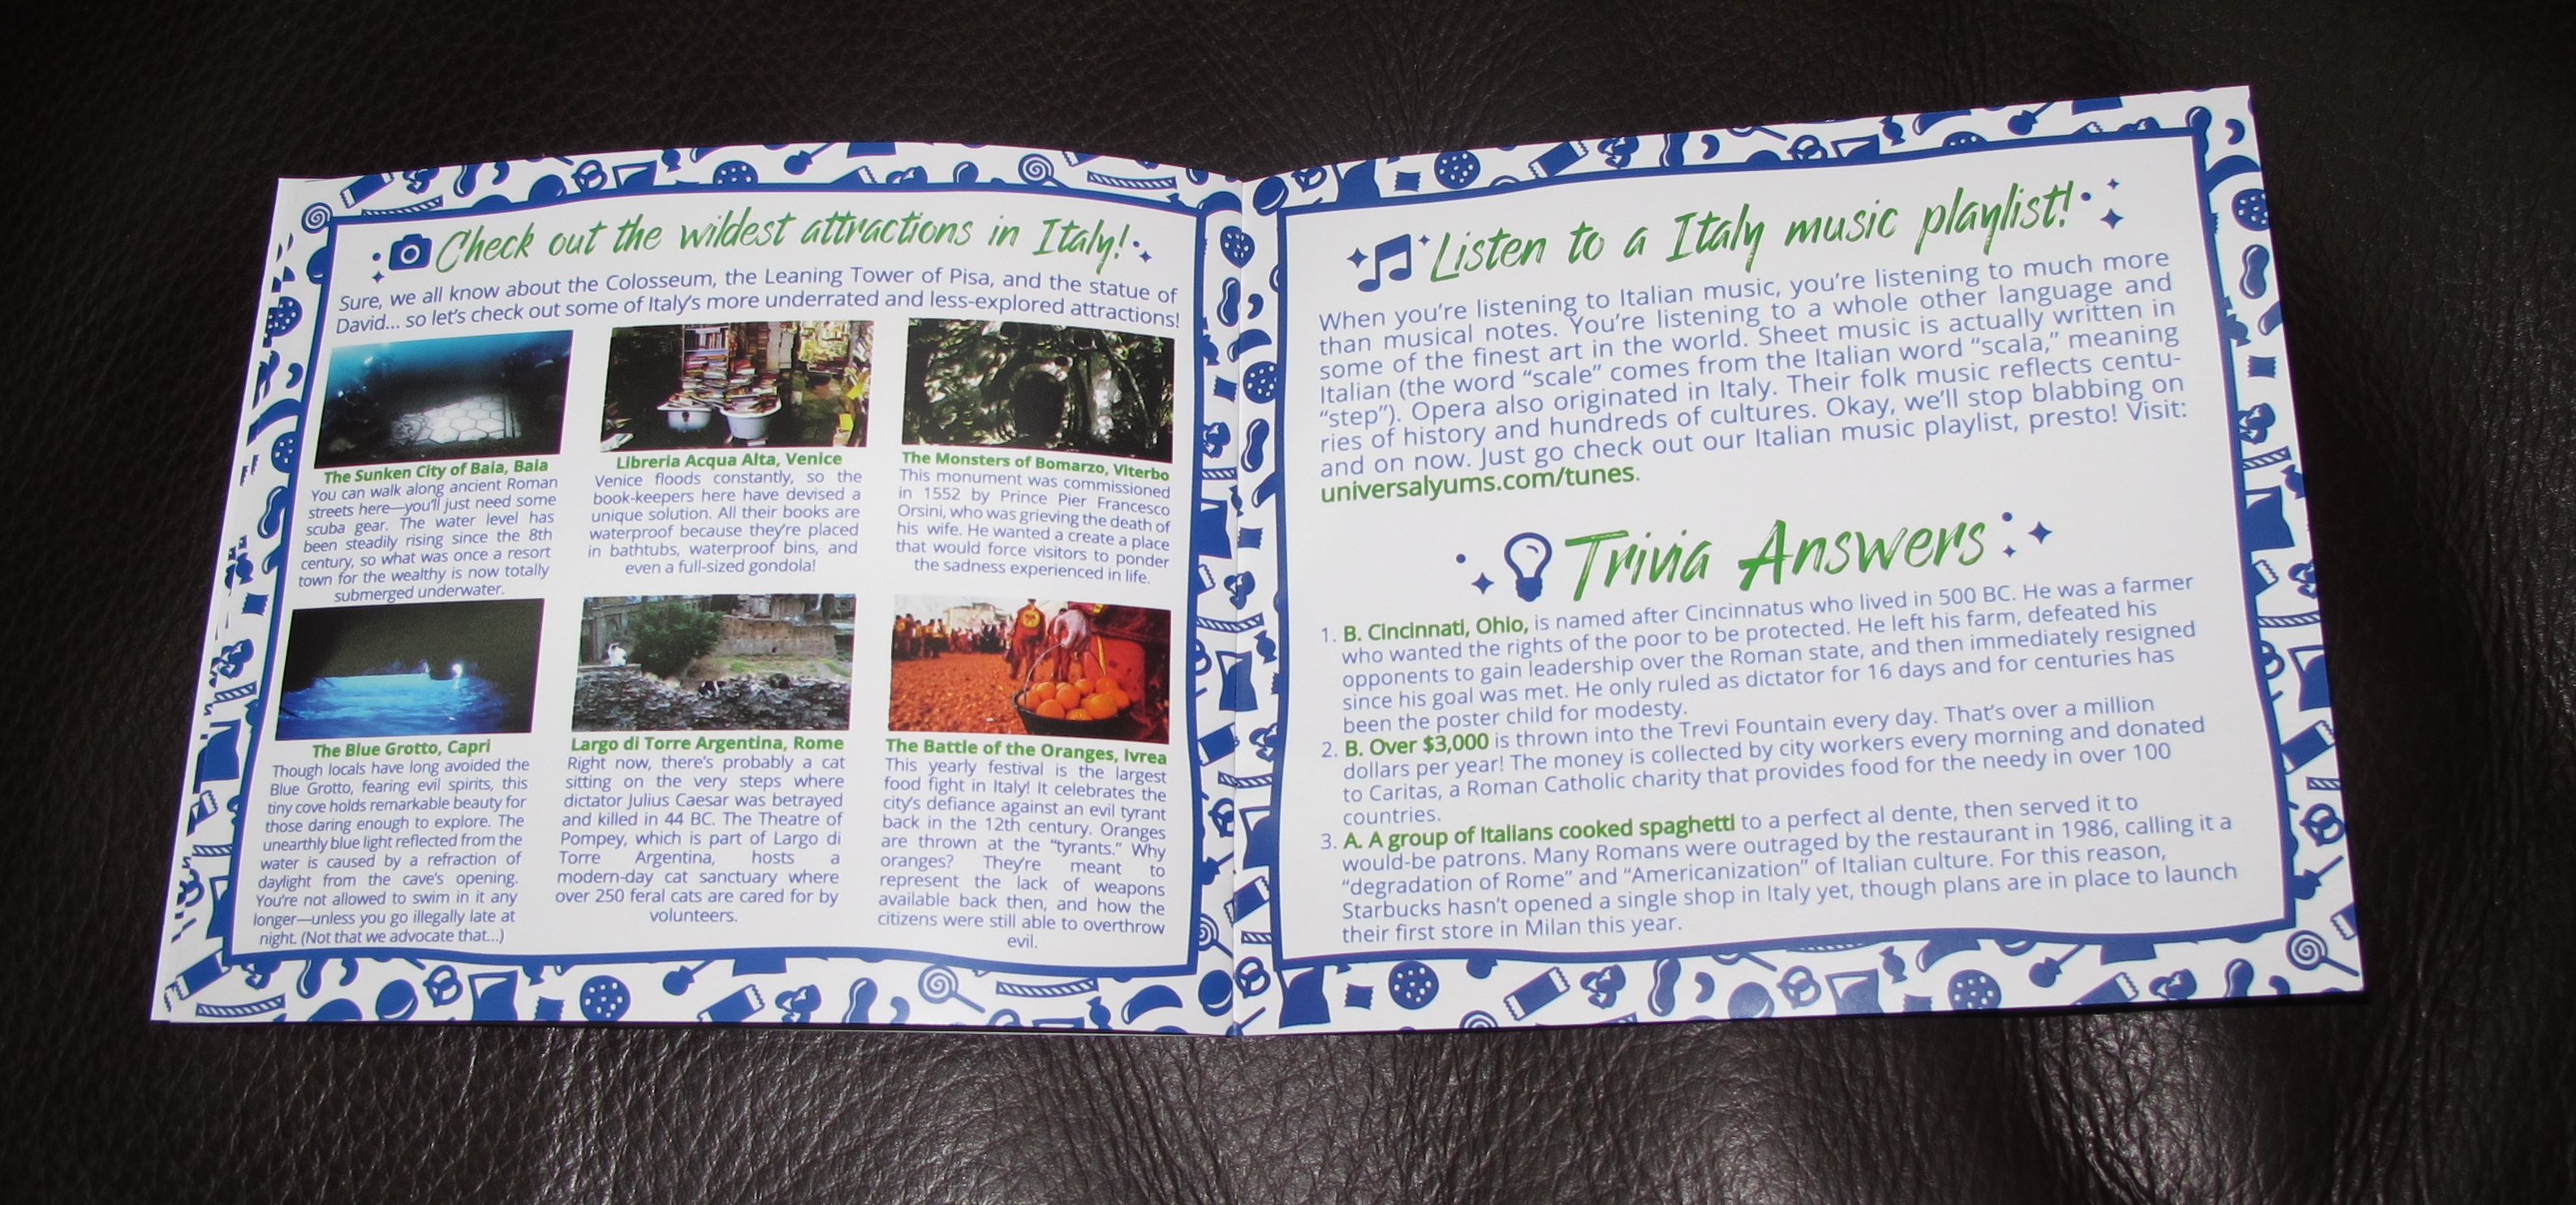 Check out the wildest attractions in Italy!
Sure, we all know about the Colosseum, the Leaning Tower of Pisa, and the statue of
David... so let's check out some of Italy's more underrated and less-explored attractions!
The Sunken City of Baia, Baia
You can walk along ancient Roman
streets here—you'll just need some
scuba gear. The water level has
been steadily rising since the 8th
century, so what was once a resort
town for the wealthy is now totally
submerged underwater.
Libreria Acqua Alta, Venice
Venice floods constantly, so the
book-keepers here have devised a
unique solution. All their books are
waterproof because they're placed
in bathtubs, waterproof bins, and
even a full-sized gondola!
The Monsters of Bomarzo, Viterbo
This monument was commissioned
in 1552 by Prince Pier Francesco
Orsini, who was grieving the death of
his wife. He wanted a create a place
that would force visitors to ponder
the sadness experienced in life.
The Blue Grotto, Capri
Though locals have long avoided the
Blue Grotto, fearing evil spirits, this
tiny cove holds remarkable beauty for
those daring enough to explore. The
unearthly blue light reflected from the
water is caused by a refraction of
daylight from the cave's opening.
You're not allowed to swim in it any
longer—unless you go illegally late at
night. (Not that we advocate that...)
Largo di Torre Argentina, Rome
Right now, there's probably a cat
sitting on the very steps where
dictator Julius Caesar was betrayed
and killed in 44 BC. The Theatre of
Pompey, which is part of Largo di
Torre Argentina, hosts a
modern-day cat sanctuary where
over 250 feral cats are cared for by
volunteers.
The Battle of the Oranges, Ivrea
This yearly festival is the largest
food fight in Italy! It celebrates the
city's defiance against an evil tyrant
back in the 12th century. Oranges
are thrown at the "tyrants." Why
oranges? They're meant to
represent the lack of weapons
available back then, and how the
citizens were still able to overthrow
evil.
Listen to a Italy music playlist!
When you're listening to Italian music, you're listening to much more
than musical notes. You're listening to a whole other language and
some of the finest art in the world. Sheet music is actually written in
Italian (the word "scale" comes from the Italian word "scala," meaning
"step"). Opera also originated in Italy. Their folk music reflects centu-
ries of history and hundreds of cultures. Okay, we'll stop blabbing on
and on now. Just go check out our Italian music playlist, presto! Visit:
universalyums.com/tunes.
Trivia Answers
1. B. Cincinnati, Ohio, is named after Cincinnatus who lived in 500 BC. He was a farmer
who wanted the rights of the poor to be protected. He left his farm, defeated his
opponents to gain leadership over the Roman state, and then immediately resigned
since his goal was met. He only ruled as dictator for 16 days and for centuries has
been the poster child for modesty.
2. B. Over $3,000 is thrown into the Trevi Fountain every day. That's over a million
dollars per year! The money is collected by city workers every morning and donated
to Caritas, a Roman Catholic charity that provides food for the needy in over 100
countries.
3. A. A group of Italians cooked spaghetti to a perfect al dente, then served it to
would-be patrons. Many Romans were outraged by the restaurant in 1986, calling it a
"degradation of Rome" and "Americanization" of Italian culture. For this reason,
Starbucks hasn't opened a single shop in Italy yet, though plans are in place to launch
their first store in Milan this year.